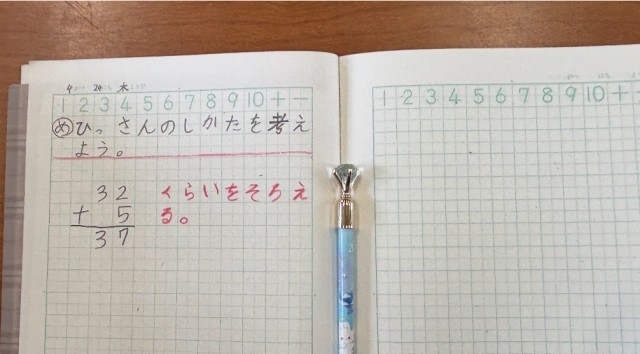 4 24 木
1 2 3 4 5 6 7 8 9 10 + −
めひっさんのしかたを考え
よう。
32 くらいをそろえ
+ 5 る。
37
1 2 3 4 5 6 7 8 9 10 + −